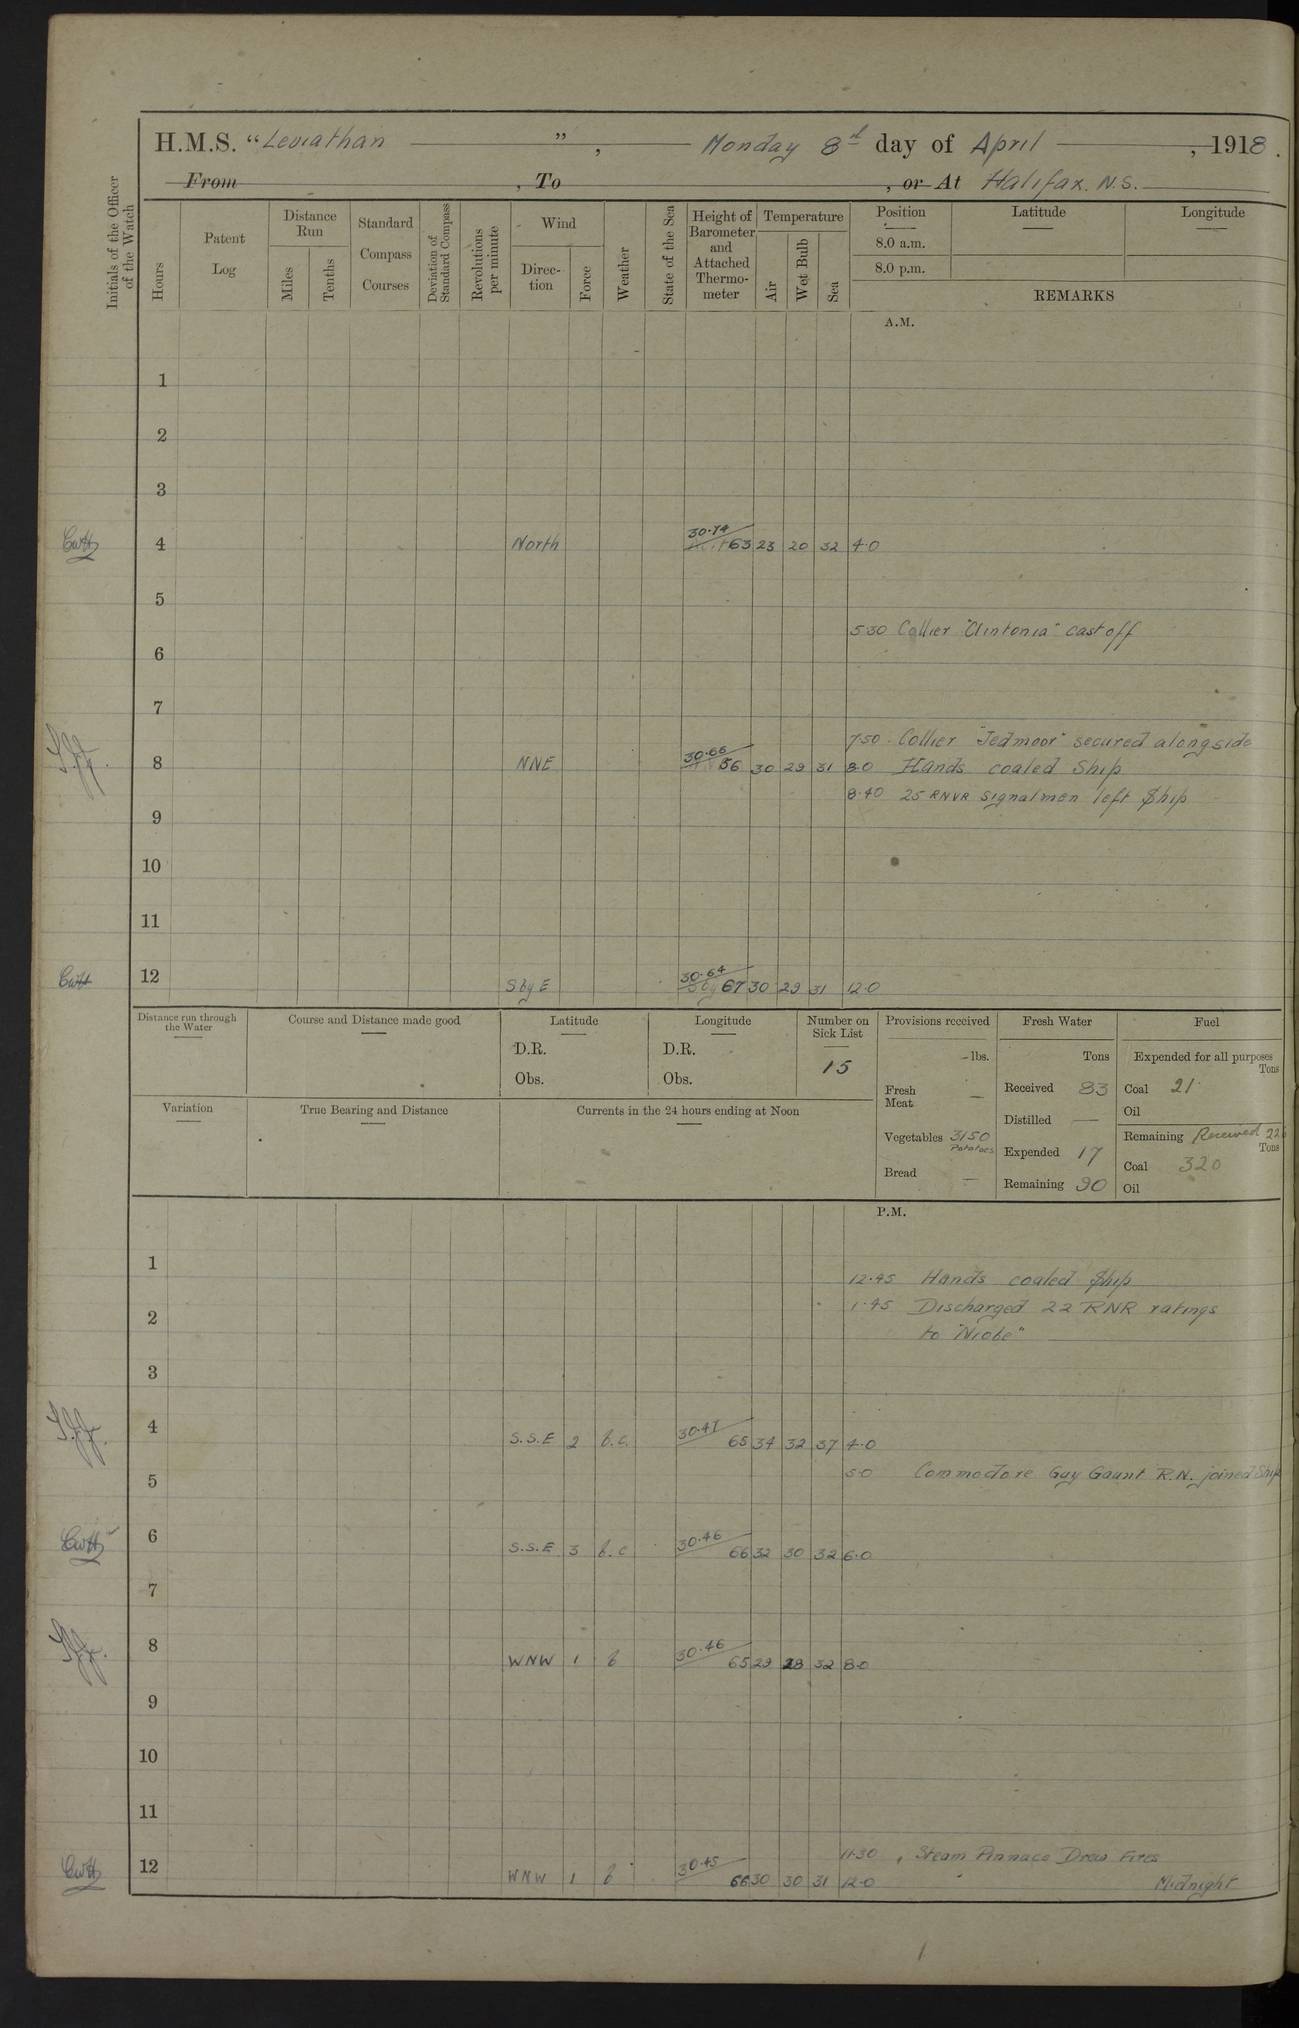 H.M.S. “Leviathan ”, Monday 8th day of April , 1918.
From , To , or At Halifax. N.S.
Initials of the Officer of the Watch
Hours
Patent Log
Distance Run
Miles
Tenths
Standard Compass Courses
Deviation of Standard Compass
Revolutions per minute
Wind
Direction
Force
Weather
State of the Sea
Height of Barometer and Attached Thermometer
Temperature
Air
Wet Bulb
Sea
Position
Latitude
Longitude
8.0 a.m.
8.0 p.m.
REMARKS
A.M.
1
2
3
4 North 30.74 63 23 20 32 4.0
5
5.30 Collier "Clintonia" cast off
6
7
7.50 Collier "Jedmoor" secured alongside
8 NNE 30.66 56 30 29 31 8.0 Hands coaled Ship
8.40 25 RNVR Signalmen left Ship
9
10
11
12 S by E 30.64 67 30 29 31 12.0
Distance run through the Water
Course and Distance made good
Latitude
D.R.
Obs.
Longitude
D.R.
Obs.
Number on Sick List
15
Variation
True Bearing and Distance
Currents in the 24 hours ending at Noon
Provisions received
lbs.
Fresh Meat —
Vegetables 3150
Potatoes
Bread —
Fresh Water
Tons
Received 83
Distilled —
Expended 17
Remaining 90
Fuel
Expended for all purposes
Tons
Coal 21
Oil
Remaining Received 226
Tons
Coal 320
Oil
P.M.
1
12.45 Hands coaled Ship
1.45 Discharged 22 RNR ratings
2
to "Niobe"
3
4 S.S.E 2 b.c. 30.47 65 34 32 37 4.0
5.0 Commodore Guy Gaunt R.N. joined Ship
5
6 S.S.E 3 b.c 30.46 66 32 30 32 6.0
7
8 WNW 1 b 30.46 65 29 28 32 8.0
9
10
11
11.30 Steam Pinnace Drew Fires
12 WNW 1 b 30.45 66 30 30 31 12.0 Midnight